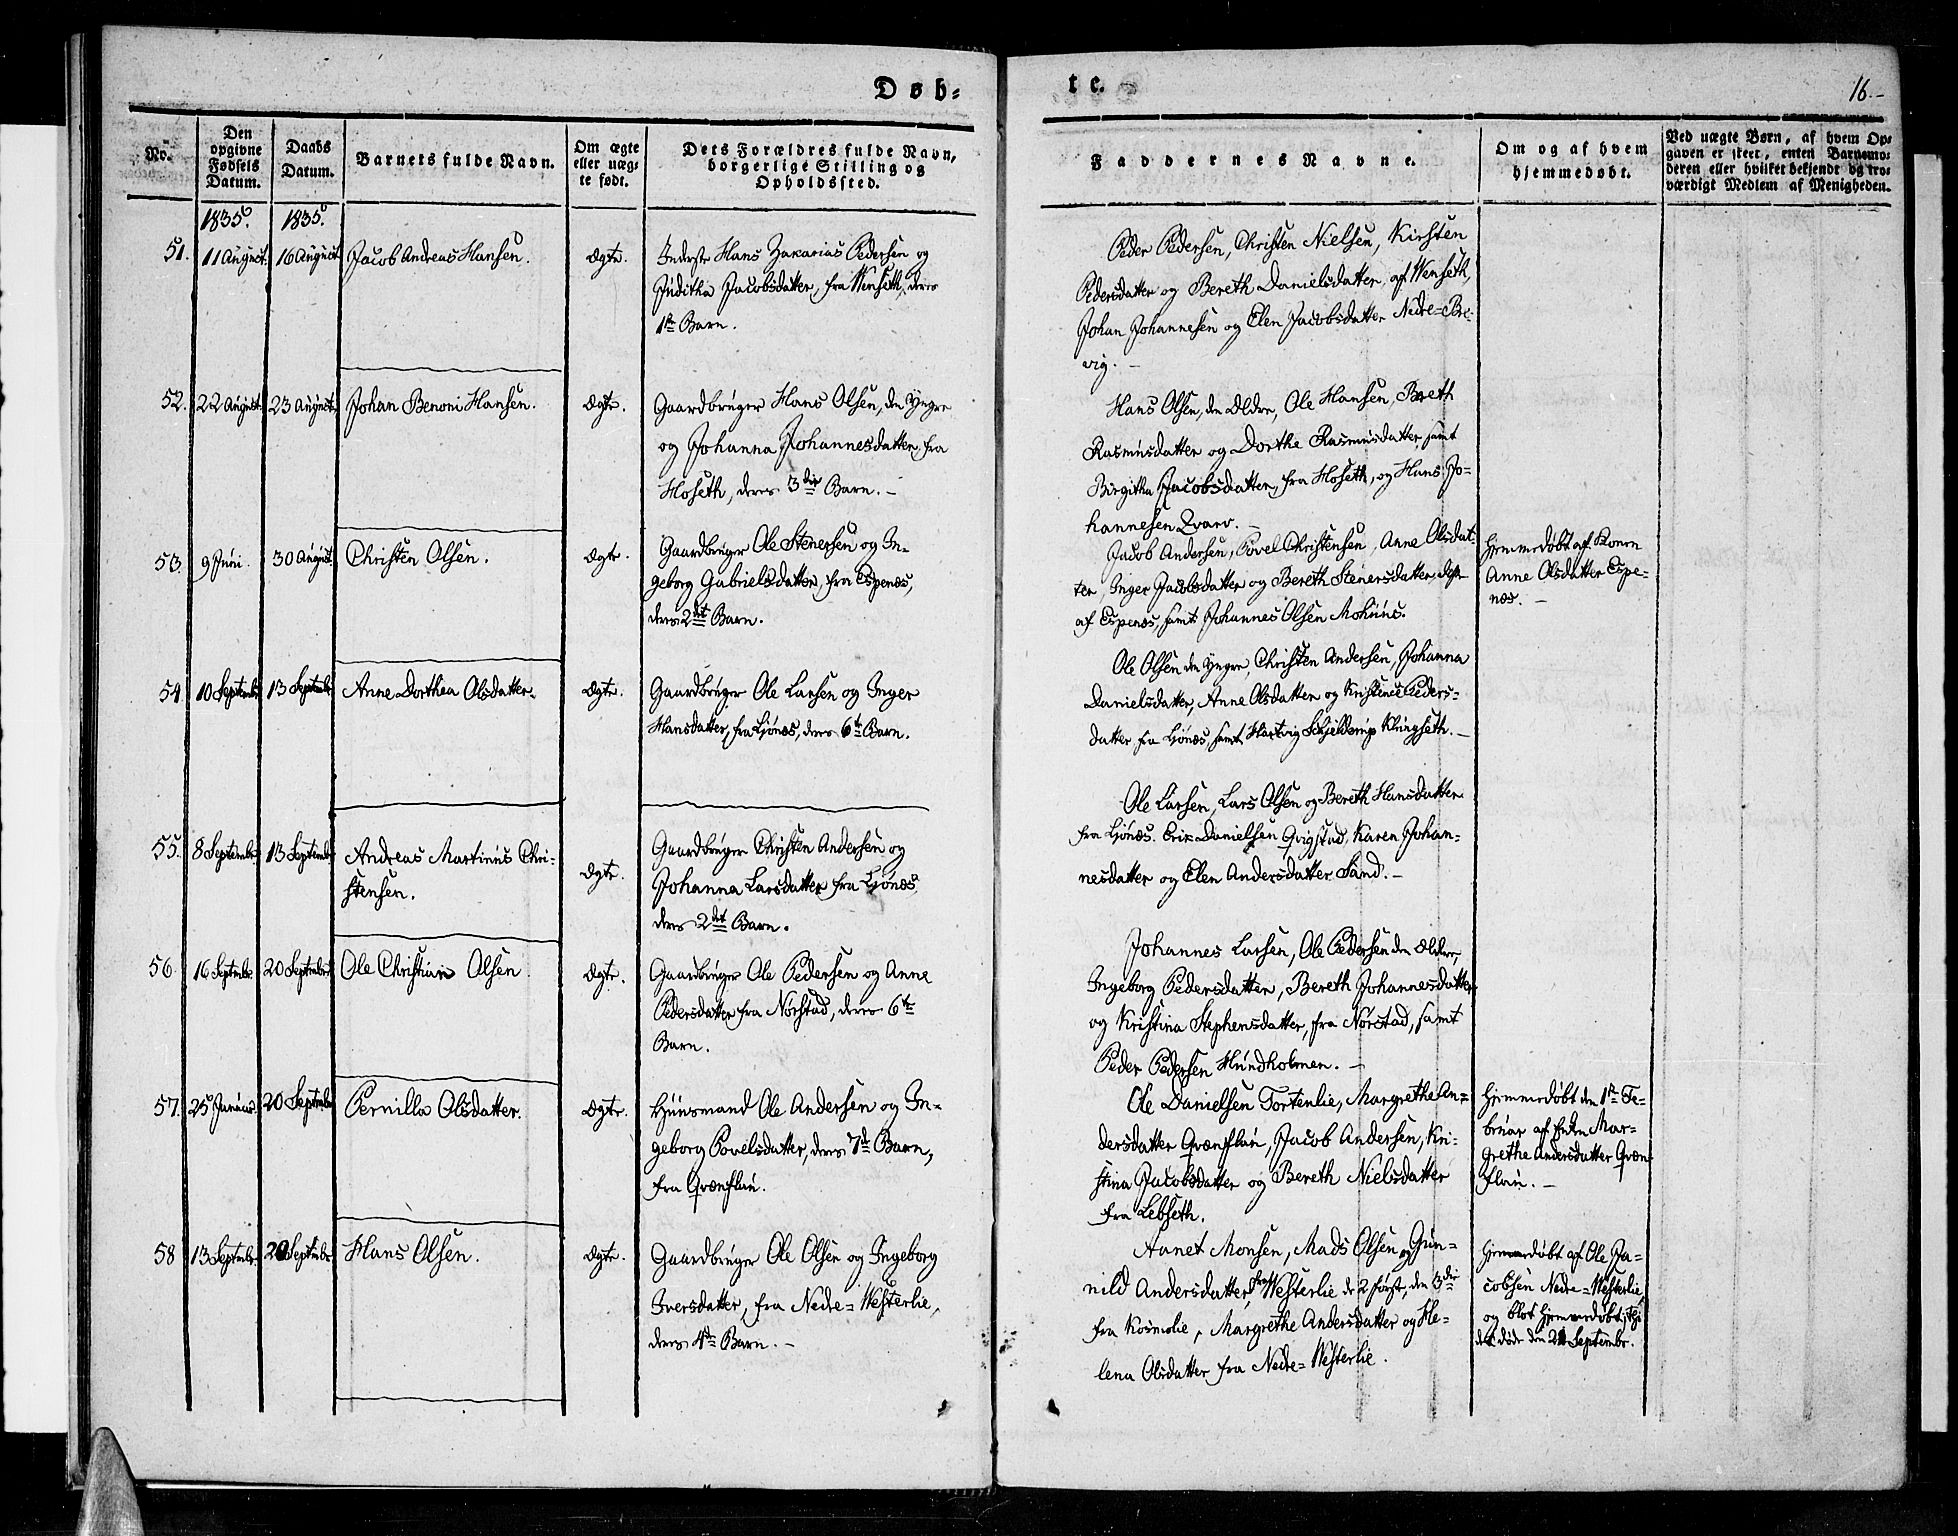 Døb-
te.
16.-
No.
Den
opgivne
Fødsels
Datum.
Daabs
Datum.
Barnets fulde Navn.
Om ægte
eller uæg-
te født.
Dets Forældres fulde Navn,
borgerlige Stilling og
Opholdssted.
Faddernes Navne.
Om og af hvem
hjemmedøbt.
Ved uægte Børn, af hvem Op-
gaven er skeet, enten Barnemo-
deren eller hvilket bekjendt og tro-
værdigt Medlem af Menigheden.
1835. 1835.
51. 11 August. 16 August. Jacob Andreas Hansen. Ægte.
Inderste Hans Zakarias Pedersen og
Juditha Jacobsdatter, fra Wenseth, deres
1ste Barn.
Peder Pedersen, Christen Nielsen, Kirsten
Pedersdatter og Bereth Danielsdatter, af Wenseth,
Johan Johannesen og Elen Jacobsdatter Nedre=Bre-
vig. -
52. 22 August. 23 August. Johan Benoni Hansen. Ægte.
Gaardbruger Hans Olsen, den Yngre
og Johanna Johannesdatter, fra
Hoseth, deres 3die Barn. -
Hans Olsen, den Ældre, Ole Hansen, Bereth
Rasmusdatter og Dorthe Rasmusdatter samt
Birgitha Jacobsdatter, fra Hoseth, og Hans Jo-
hannesen Qvarv. -
53. 9 Juni. 30 August. Christen Olsen. Ægte.
Gaardbruger Ole Stenersen og In-
geborg Gabrielsdatter, fra Espenæs,
deres 2det Barn.
Jacob Andersen, Povel Christensen, Anne Olsdat-
ter, Inger Jacobsdatter og Bereth Stenersdatter,
af Espenæs, samt Johannes Olsen Mohuus.
Hjemmedøbt af Konen
Anne Olsdatter Espe-
næs. -
54. 10 Septembr. 13 Septembr. Anne Dorthea Olsdatter. Ægte.
Gaardbruger Ole Larsen og Inger
Hansdatter, fra Ljønæs, deres 6te Barn.
Ole Olsen den Yngre, Christen Andersen, Johanna
Danielsdatter, Anne Olsdatter og Kristence Peders-
datter fra Ljønæs, samt Hartvig Schjelderup Klungseth. -
55. 8 Septembr. 13 Septembr. Andreas Martinus Chri-
stensen.
Ægte.
Gaardbruger Christen Andersen og
Johanna Larsdatter fra Ljønæs
deres 2det Barn.
Ole Larsen, Lars Olsen og Bereth Hansdatter
fra Ljønæs. Erik Danielsen Qvigstad, Karen Johan-
nesdatter og Elen Andersdatter Sand. -
56. 16 Septembr. 20 Septembr. Ole Christian Olsen Ægte.
Gaardbruger Ole Pedersen og Anne
Pedersdatter fra Nørstad, deres 6te
Barn.
Johannes Larsen, Ole Pedersen den Ældre,
Ingeborg Pedersdatter, Bereth Johannesdatter
og Kristina Stephensdatter, fra Nørstad, samt
Peder Pedersen Hundholmen. -
57. 25 Januar. 20 Septembr Pernilla Olsdatter. Ægte.
Huusmand Ole Andersen og In-
geborg Povelsdatter, deres 7de Barn,
fra Grønflau.
Ole Danielsen Tortenlie, Margrethe An-
dersdatter Grønflau, Jacob Andersen, Kri-
stina Jacobsdatter og Bereth Nielsdatter
fra Lebseth.
Hjemmedøbt den 1ste Fe-
bruar af Enken Mar-
grethe Andersdatter Grøn-
flau. -
58 13 Septembr. 20 Septembr. Hans Olsen. Ægte.
Gaardbruger Ole Olsen og Ingeborg
Iversdatter, fra Nedre=Westerlie,
deres 4de Barn. -
Aanet Monsen, Mads Olsen og Gun-
nild Andersdatter, fra Westerlie de 2 først, den 3die
fra Kosmolie, Margrethe Andersdatter og He-
lena Olsdatter fra Nedre=Westerlie.
Hjemmedøbt af Ole Ja-
cobsen Nedre=Westerlie,
og blot hjemmedøbt, thi
det døde den Septembr.